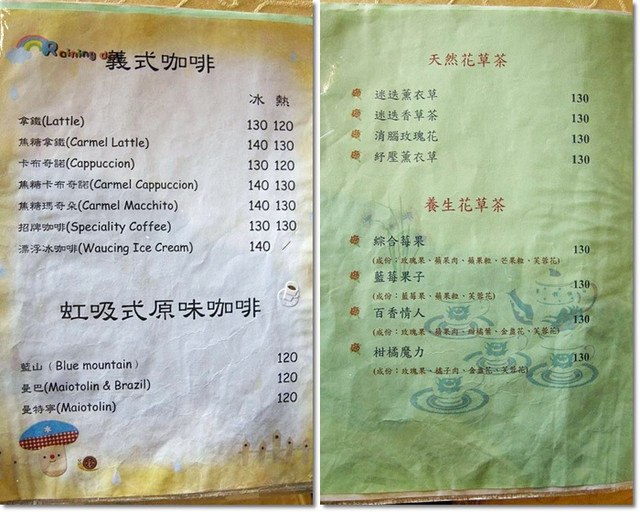 Raining
義式咖啡
冰 熱
拿鐵(Lattle) 130 120
焦糖拿鐵(Carmel Lattle) 140 130
卡布奇諾(Cappuccion) 130 120
焦糖卡布奇諾(Carmel Cappuccion) 140 130
焦糖瑪奇朵(Carmel Macchito) 140 130
招牌咖啡(Speciality Coffee) 130 130
漂浮冰咖啡(Waucing Ice Cream) 140 /
虹吸式原味咖啡
藍山(Blue mountain) 120
曼巴(Maiotolin & Brazil) 120
曼特寧(Maiotolin) 120
天然花草茶
迷迭薰衣草 130
迷迭香草茶 130
消腦玫瑰花 130
紓壓薰衣草 130
養生花草茶
綜合莓果 130
(成份：玫瑰果、蘋果肉、蘋果粒、芒果粒、芙蓉花)
藍莓果子 130
(成份：藍莓果、蘋果粒、芙蓉花)
百香情人 130
(成份：玫瑰果、蘋果肉、柑橘葉、金盞花、芙蓉花)
柑橘魔力 130
(成份：玫瑰果、橘子肉、金盞花、芙蓉花)